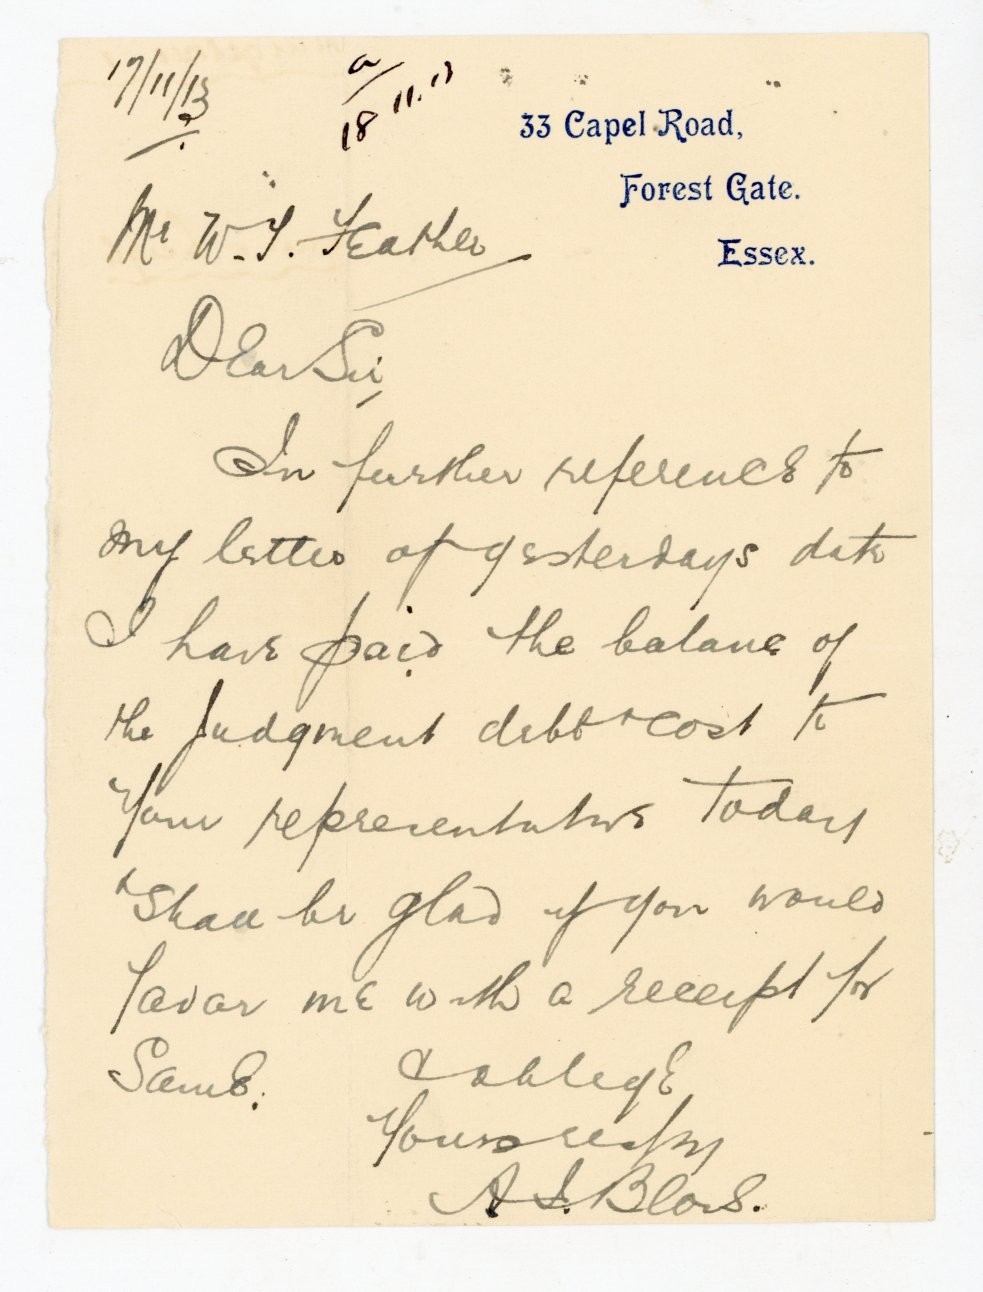 17/11/13
a/
18 11.13
33 Capel Road,
Forest Gate.
Essex.
Mr W. J. Feather
Dear Sir,
In further reference to
my letter of yesterdays date
I have paid the balance of
the Judgment debt & cost to
Your representative today
& shall be glad if you would
favor me with a receipt for
Same.
& oblige
Yours respy
A